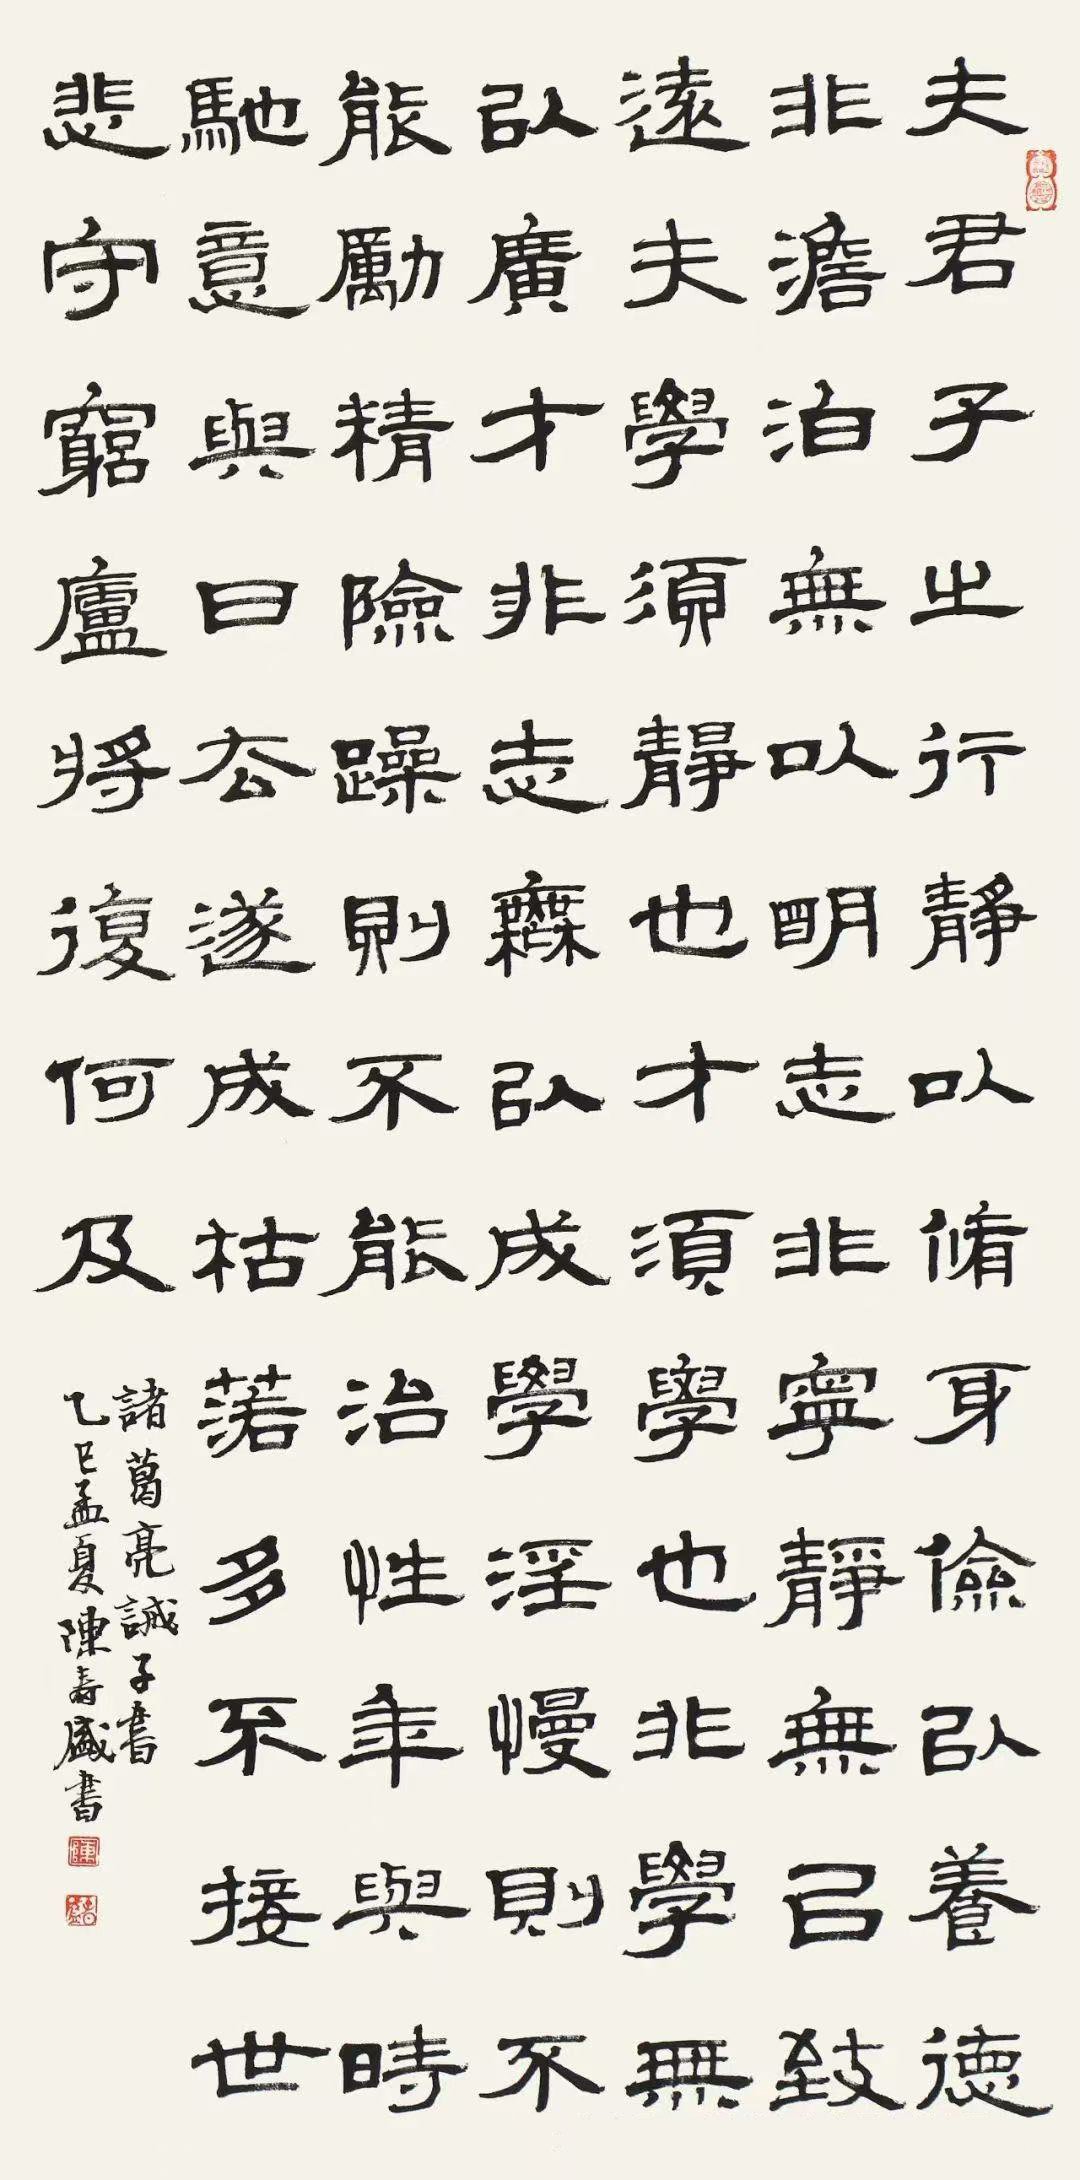 夫君子之行靜以脩身儉以養德
非澹泊無以明志非寧靜無以致
遠夫學須靜也才須學也非學無
以廣才非志無以成學淫慢則不
能勵精險躁則不能治性年與時
馳意與日去遂成枯落多不接世
悲守窮廬將復何及
諸葛亮誡子書
乙巳孟夏陳寿盛書